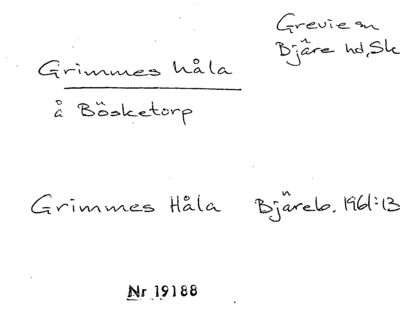 Grevie sn
Bjäre hd, Sk
Grimmes håla
å Bösketorp
Grimmes Håla Bjäreb. 1961:13
Nr 19188